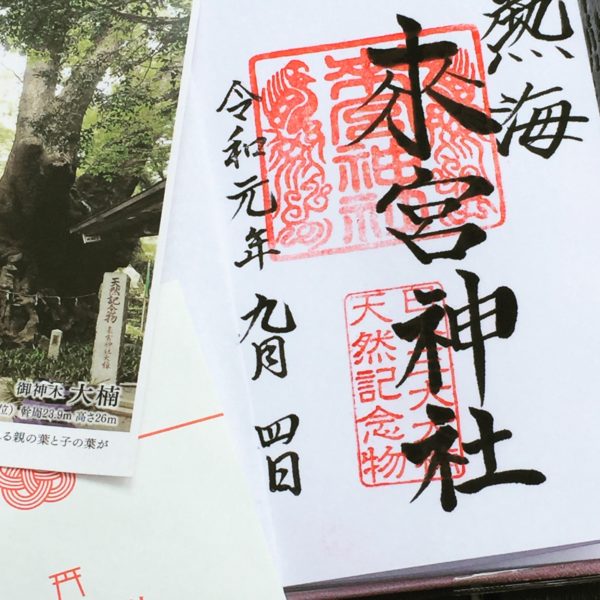 熱海
來宮神社
天然記念物
令和元年 九月 四日
天然記念物
御神木 大楠
幹周23.9m 高さ26m
る親の葉と子の葉が